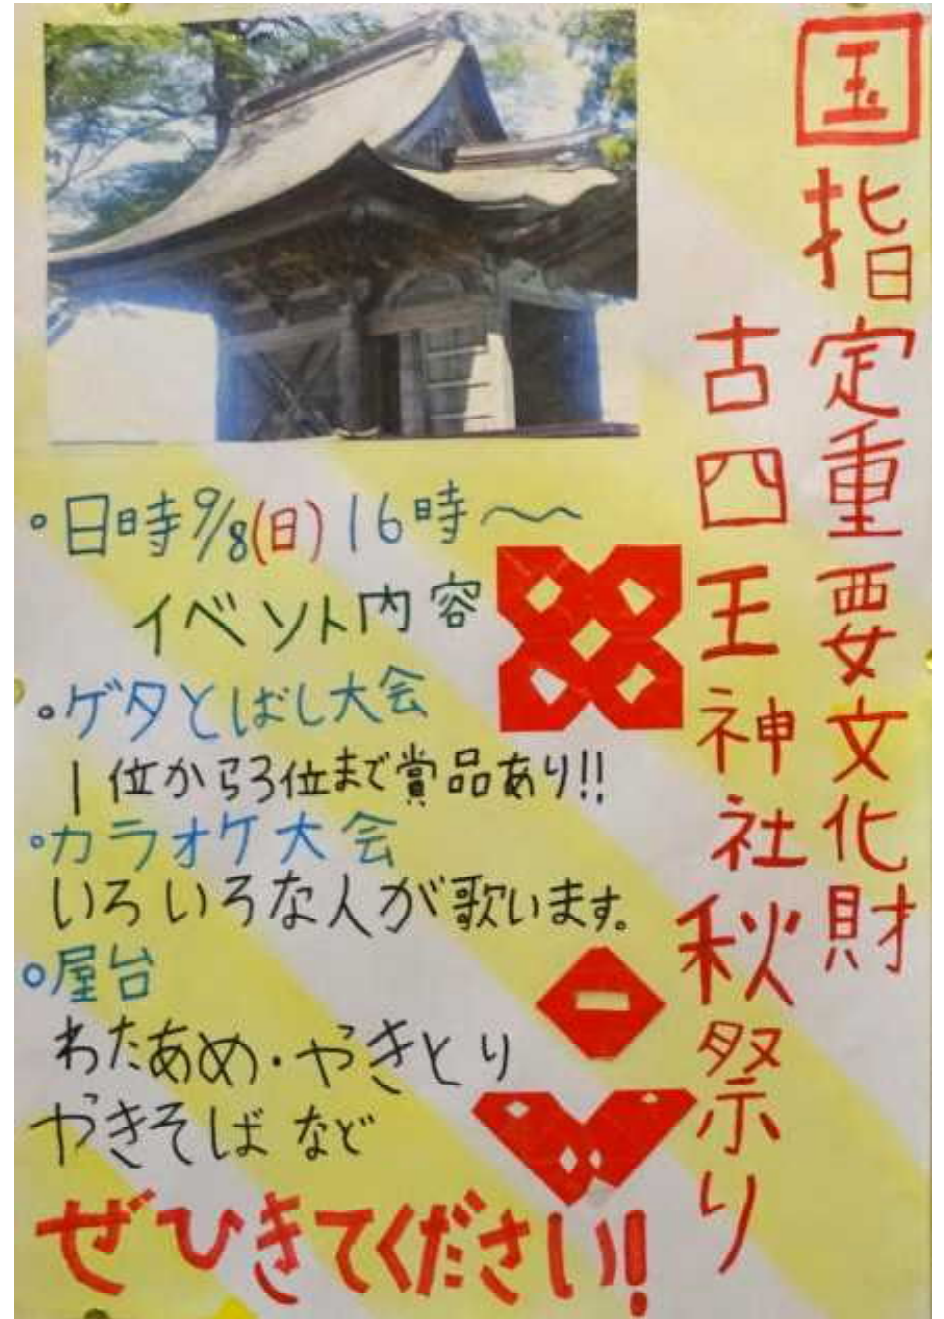 国指定重要文化財
古四王神社秋祭り
。日時9/8(日)16時〜〜
イベント内容
。ゲタとばし大会
1位から3位まで賞品あり!!
。カラオケ大会
いろいろな人が歌います。
。屋台
わたあめ・やきとり
やきそば など
ぜひきてください!